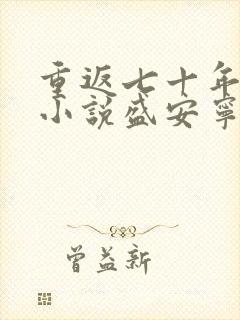 重返七十年
小说盛安宁
曾益新